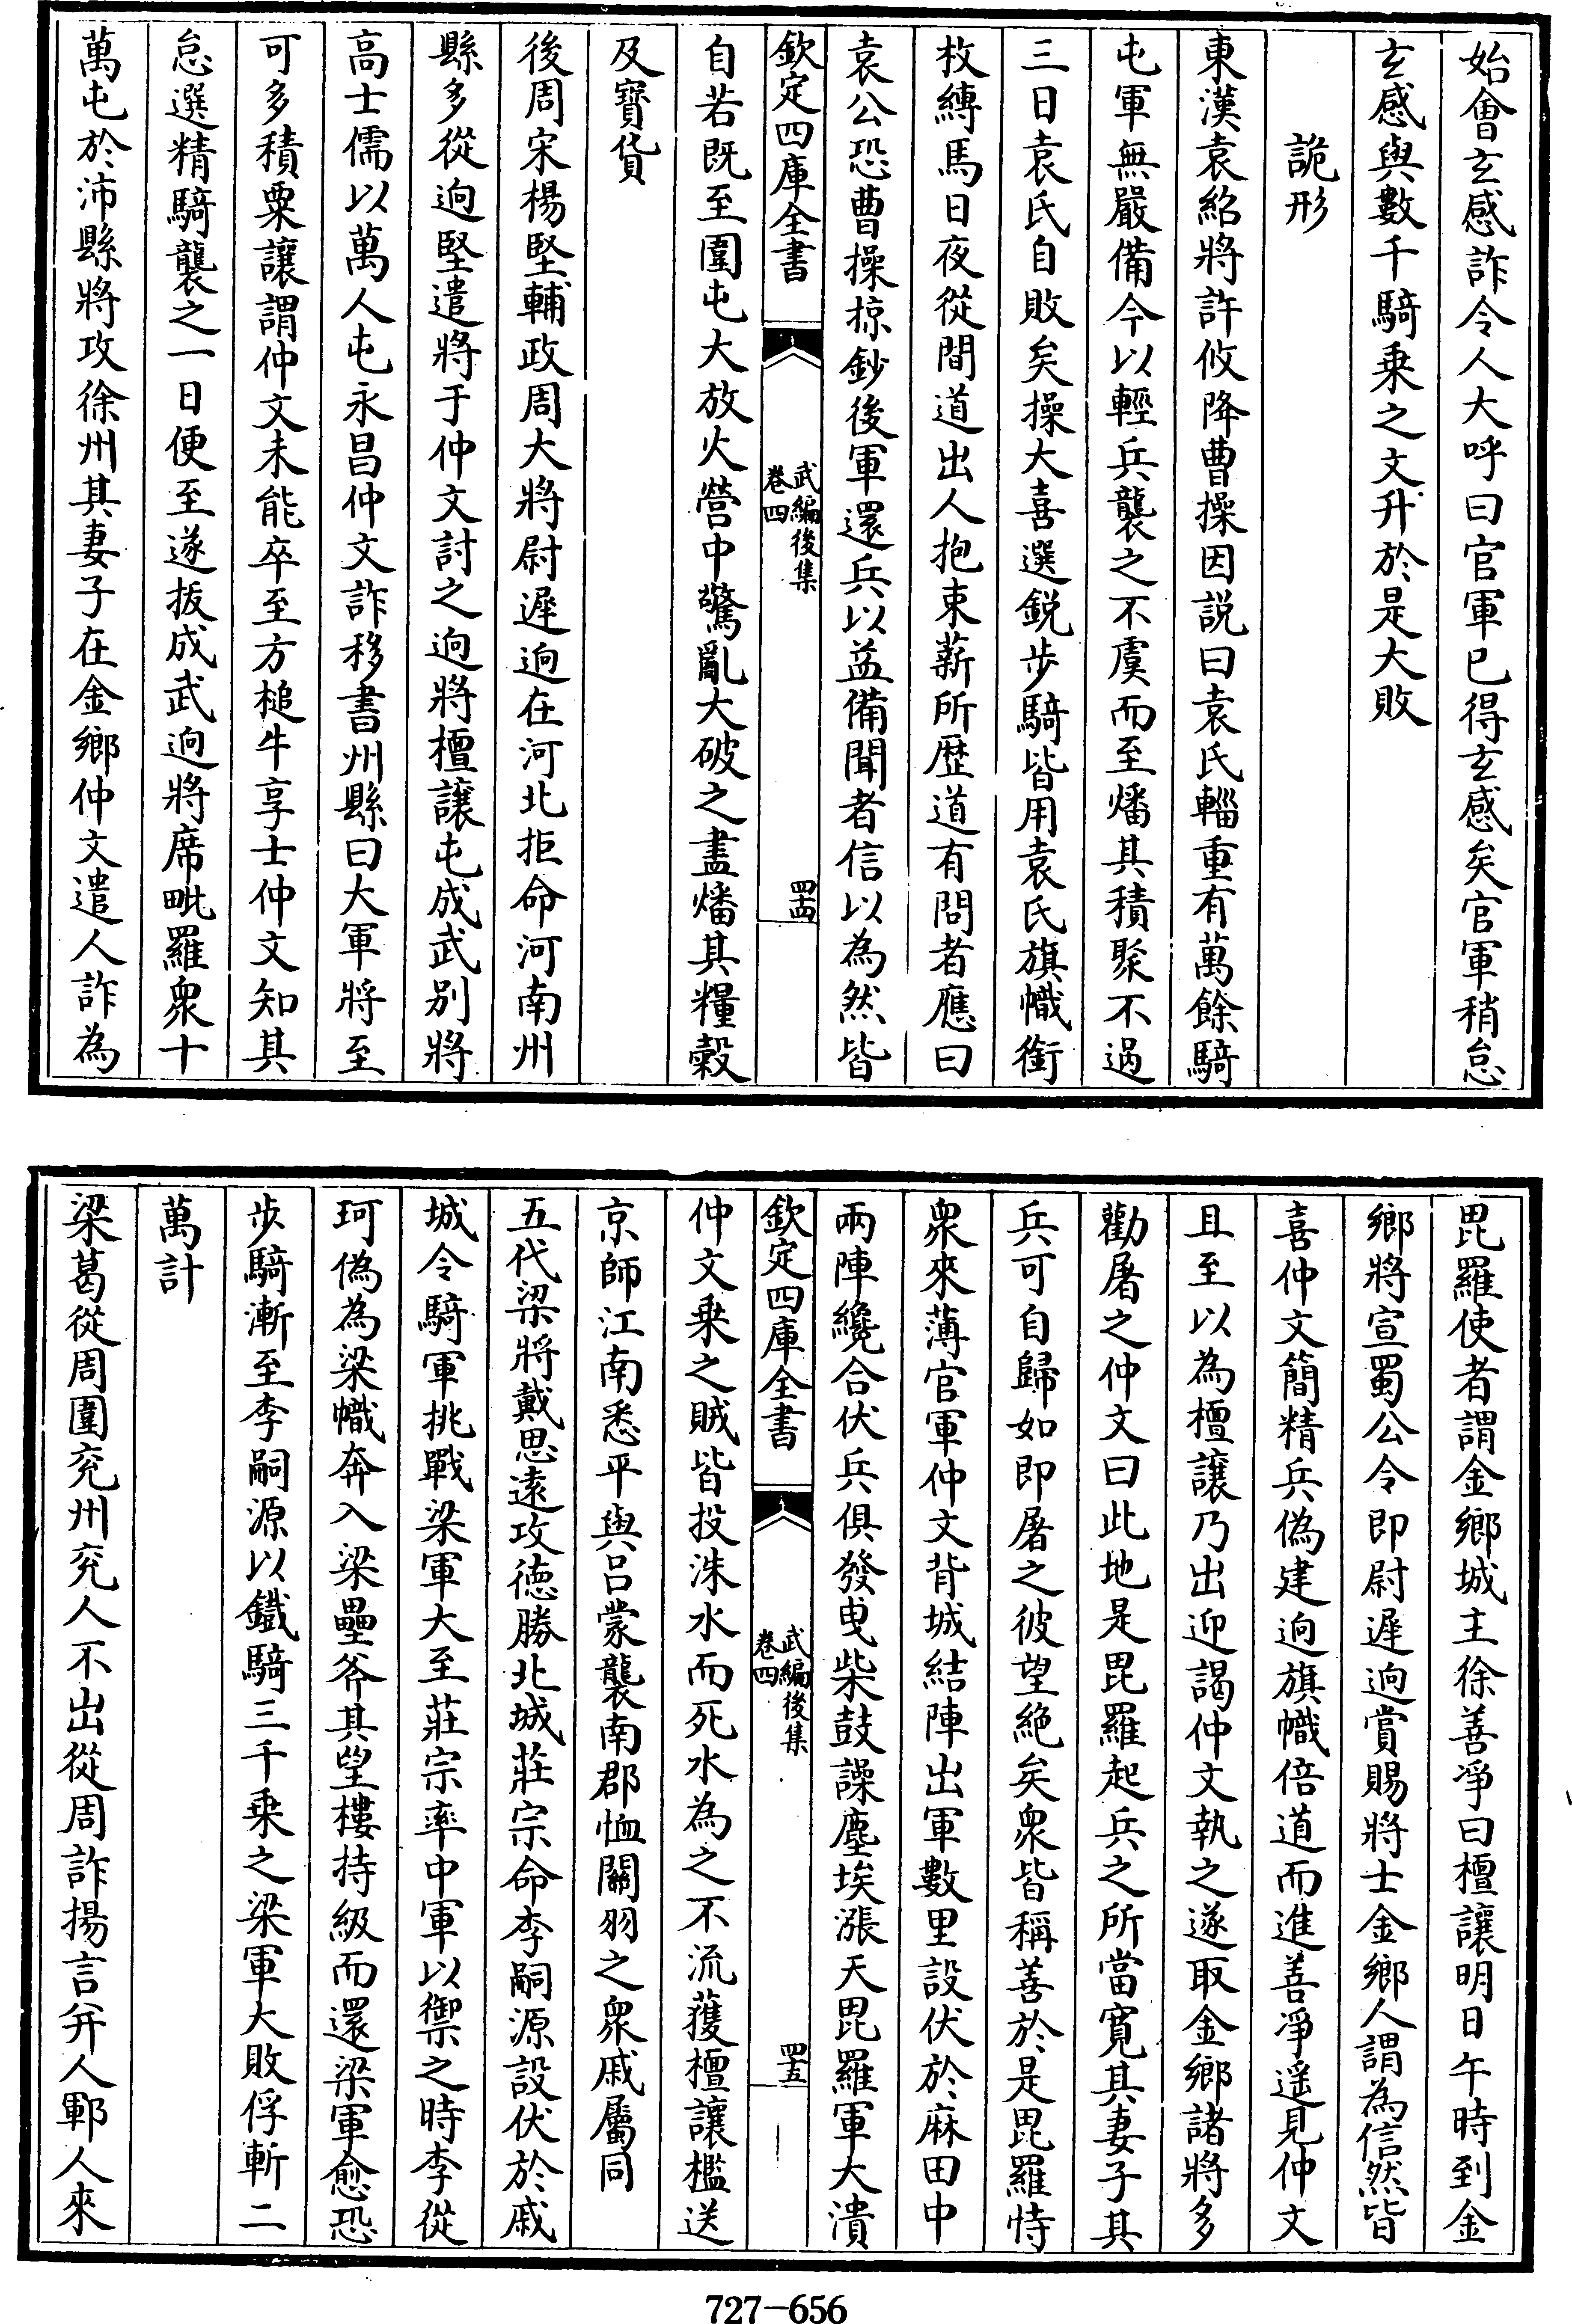 始會玄感詐令人大呼曰官軍已得玄感矣官軍稍怠
玄感與數千騎乗之文升於是大敗
詭形
東漢袁紹將許攸降曹操因説曰袁氏輜重有萬餘騎
屯軍無嚴備今以輕兵襲之不虞而至燔其積聚不過
三日袁氏自敗矣操大喜選鋭步騎皆用袁氏旗幟銜
枚縛馬日夜從間道出人抱束薪所歴道有問者應曰
袁公恐曹操掠鈔後軍還兵以益備聞者信以為然皆
欽定四庫全書
武編後集
卷四
四四
自若既至圍屯大放火營中驚亂大破之盡燔其糧穀
及寳貨
後周宋楊堅輔政周大將尉遲逈在河北拒命河南州
縣多從逈堅遣將于仲文討之逈將檀讓屯成武别將
高士儒以萬人屯永昌仲文詐移書州縣曰大軍將至
可多積粟讓謂仲文未能卒至方槌牛享士仲文知其
怠選精騎襲之一日便至遂拔成武逈將席毗羅衆十
萬屯於沛縣將攻徐州其妻子在金鄉仲文遣人詐為
毘羅使者謂金鄉城主徐善淨曰檀讓明日午時到金
鄉將宣蜀公令即尉遲逈賞賜將士金鄉人謂為信然皆
喜仲文簡精兵偽建逈旗幟倍道而進善淨遥見仲文
且至以為檀讓乃出迎謁仲文執之遂取金鄉諸將多
勸屠之仲文曰此地是毘羅起兵之所當寛其妻子其
兵可自歸如即屠之彼望絶矣衆皆稱善於是毘羅恃
衆來薄官軍仲文背城結陣出軍數里設伏於麻田中
兩陣纔合伏兵俱發曵柴鼓譟塵埃漲天毘羅軍大潰
欽定四庫全書
武編後集
卷四
四五
仲文乗之賊皆投洙水而死水為之不流獲檀讓檻送
京師江南悉平與吕蒙襲南郡恤關羽之衆戚屬同
五代梁將戴思遠攻徳勝北城莊宗命李嗣源設伏於戚
城令騎軍挑戰梁軍大至莊宗率中軍以禦之時李從
珂偽為梁幟奔入梁壘斧其望樓持級而還梁軍愈恐
步騎漸至李嗣源以鐵騎三千乗之梁軍大敗俘斬二
萬計
梁葛從周圍兖州兖人不出從周詐揚言并人鄆人來
727-656